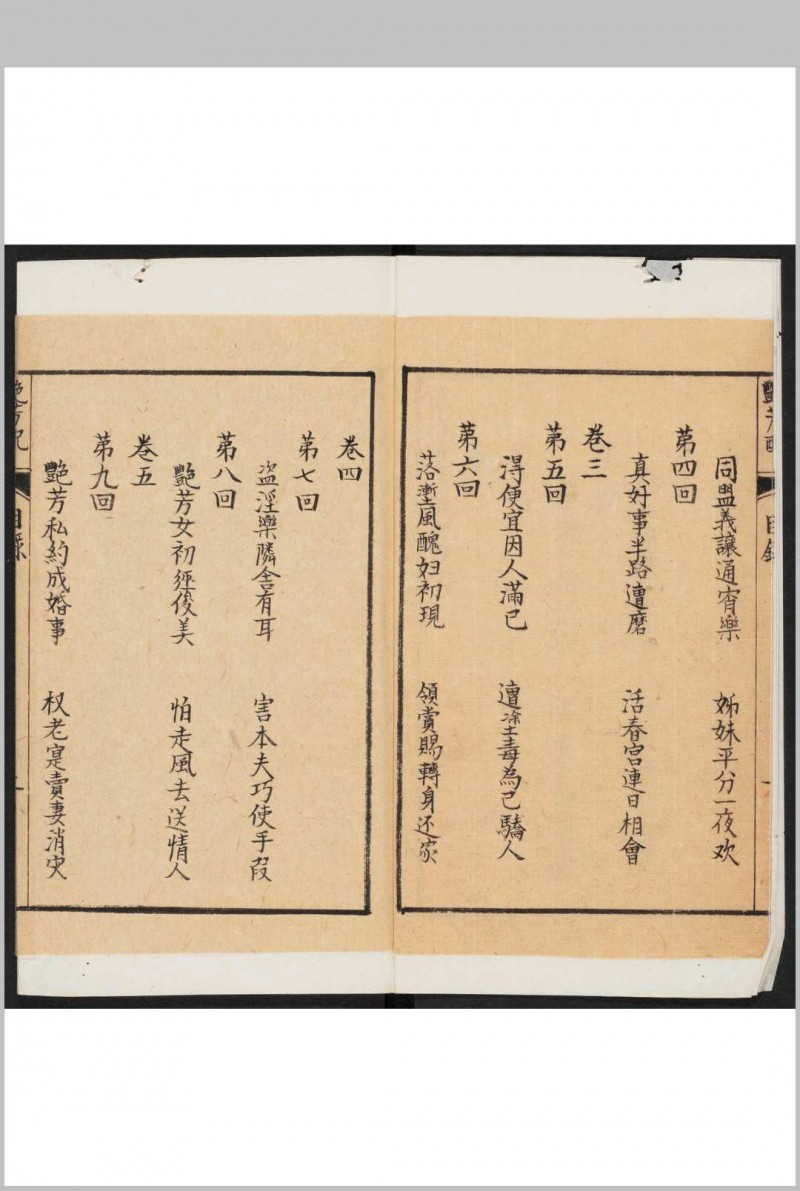 同盟義讓通宵樂　姊妹平分一夜欢
第四回
真好事半路遭磨　活春宫連日相會
卷三
第五回
得便宜因人滿已　遭塗毒為己驕人
第六回
落塹風醜妇初現　領賞賜轉身还家
目錄
卷四
第七回
盗淫樂隣舍有耳　害本夫巧使手段
第八回
艷芳女初經俊美　怕走風去送情人
卷五
第九回
艷芳私約成婚事　权老寔賣妻消灾
目錄